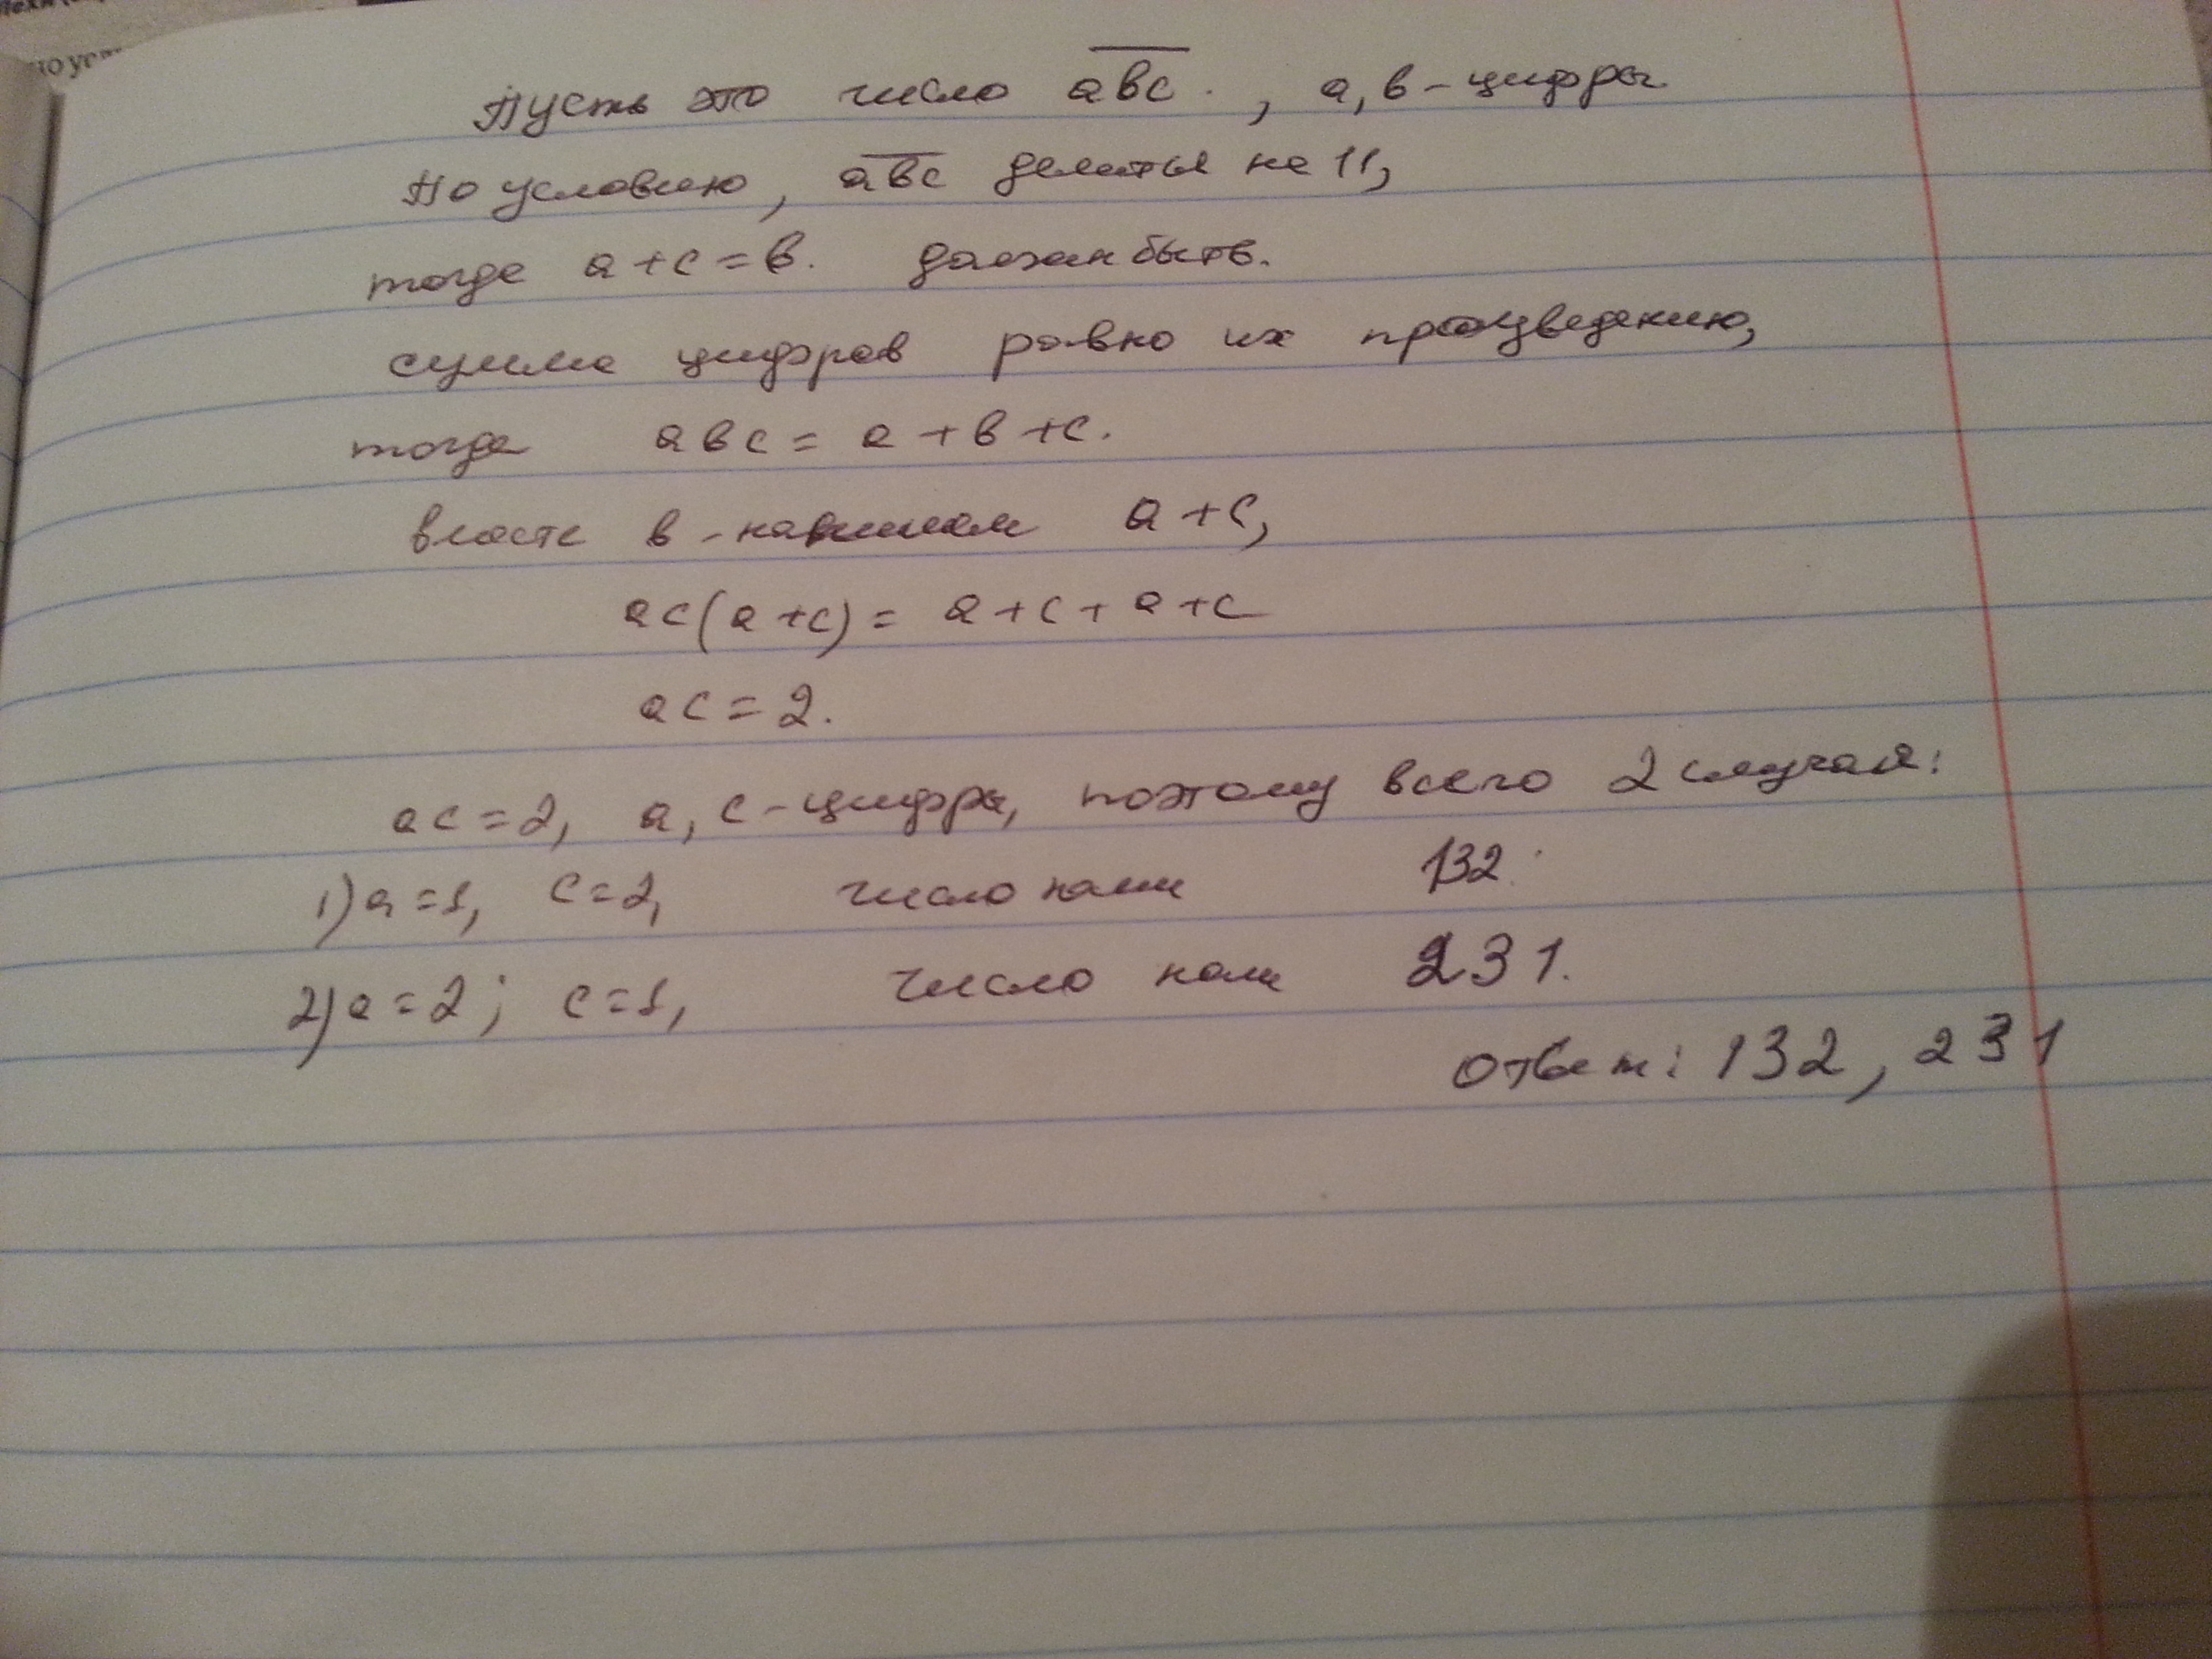 Пусть это число авс. , а, в - цифры.
По условию, авс делиться на 11,
тогда а + с = в. должен быть.
сумма цифров равно их произведению,
тогда авс = а + в + с.
вместе в - напишем а + с,
ас(а + с) = а + с + а + с
ас = 2.
ас = 2, а, с - цифры, поэтому всего 2 случая:
1) а = 1, с = 2, число наши 132.
2) а = 2; с = 1, число наши 231.
Ответ: 132, 231